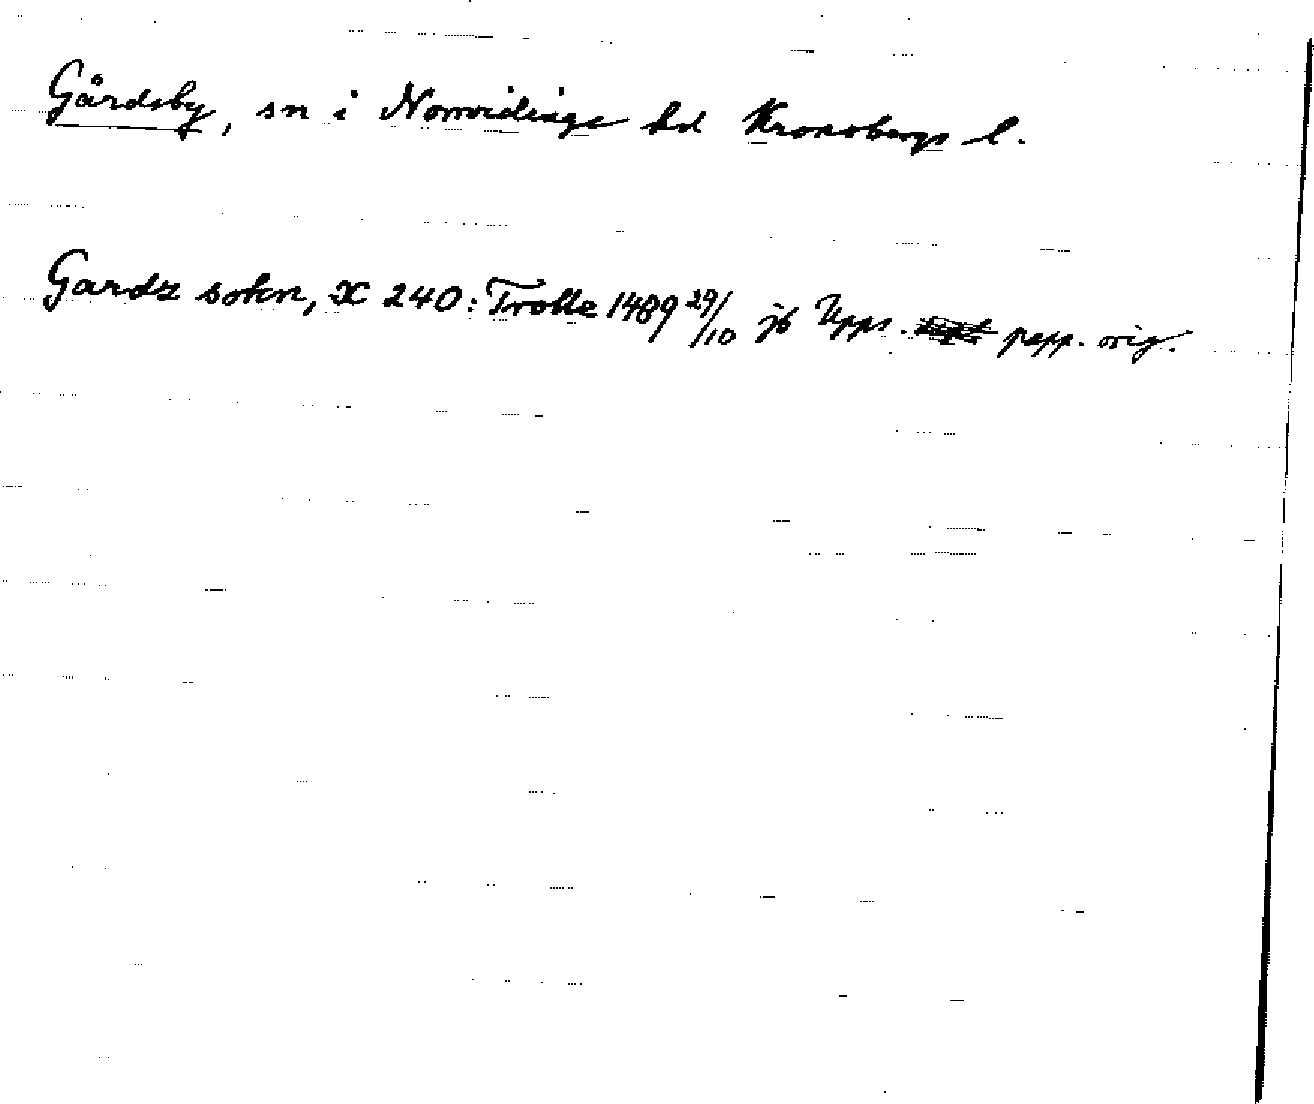 Gårdsby, sn i Norrvidinge hd Kronobergs l.
Gardz sokn, X 240: Trolle 1489 29/10 jb Upps. papp. orig.